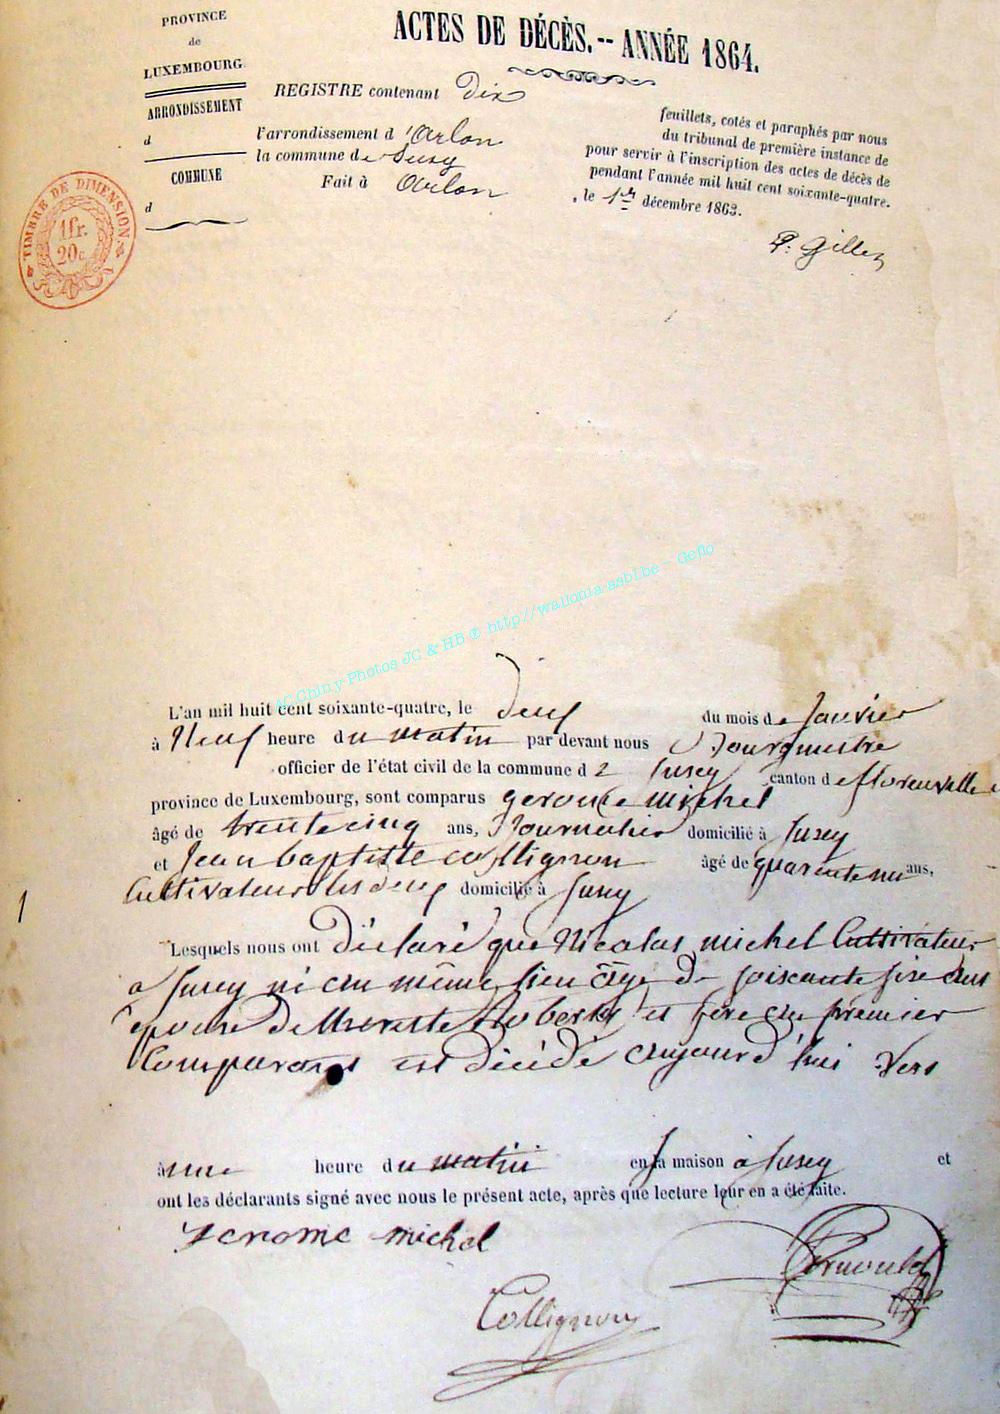 PROVINCE
de
LUXEMBOURG
ARRONDISSEMENT
d
COMMUNE
d
TIMBRE DE DIMENSION
1fr.
20c
ACTES DE DÉCÈS. -- ANNÉE 1864.
REGISTRE contenant Dix
feuillets, cotés et paraphés par nous
du tribunal de première instance de
l'arrondissement d'Arlon
pour servir à l'inscription des actes de décès de
la commune de Suxy
pendant l'année mil huit cent soixante-quatre.
Fait à Arlon, le 1er décembre 1863.
P. Gilles
AC Chiny-Photos JC & HB @ http://wallonia-asbl.be - Geflo
L'an mil huit cent soixante-quatre, le deuf du mois de Janvier
à Neuf heure du matin par devant nous Bourgmestre
officier de l'état civil de la commune d Susey canton de florenville
province de Luxembourg, sont comparus gerome michel
âgé de trente cinq ans, Journalier domicilié à Susey
et Jean baptiste collignon âgé de quarente un ans,
Cultivateur les deux domicilié à Susy
1
Lesquels nous ont Déclaré que Nicolas michel Cultivateur
a Susey né au même lieu âge de soiscante sixe ans
époux de Robert et père du premier
Comparant est décédé aujourd'hui vers
à une heure du matin en sa maison a Susey et
ont les déclarants signé avec nous le présent acte, après que lecture leur en a été faite.
Jerome michel
Collignon